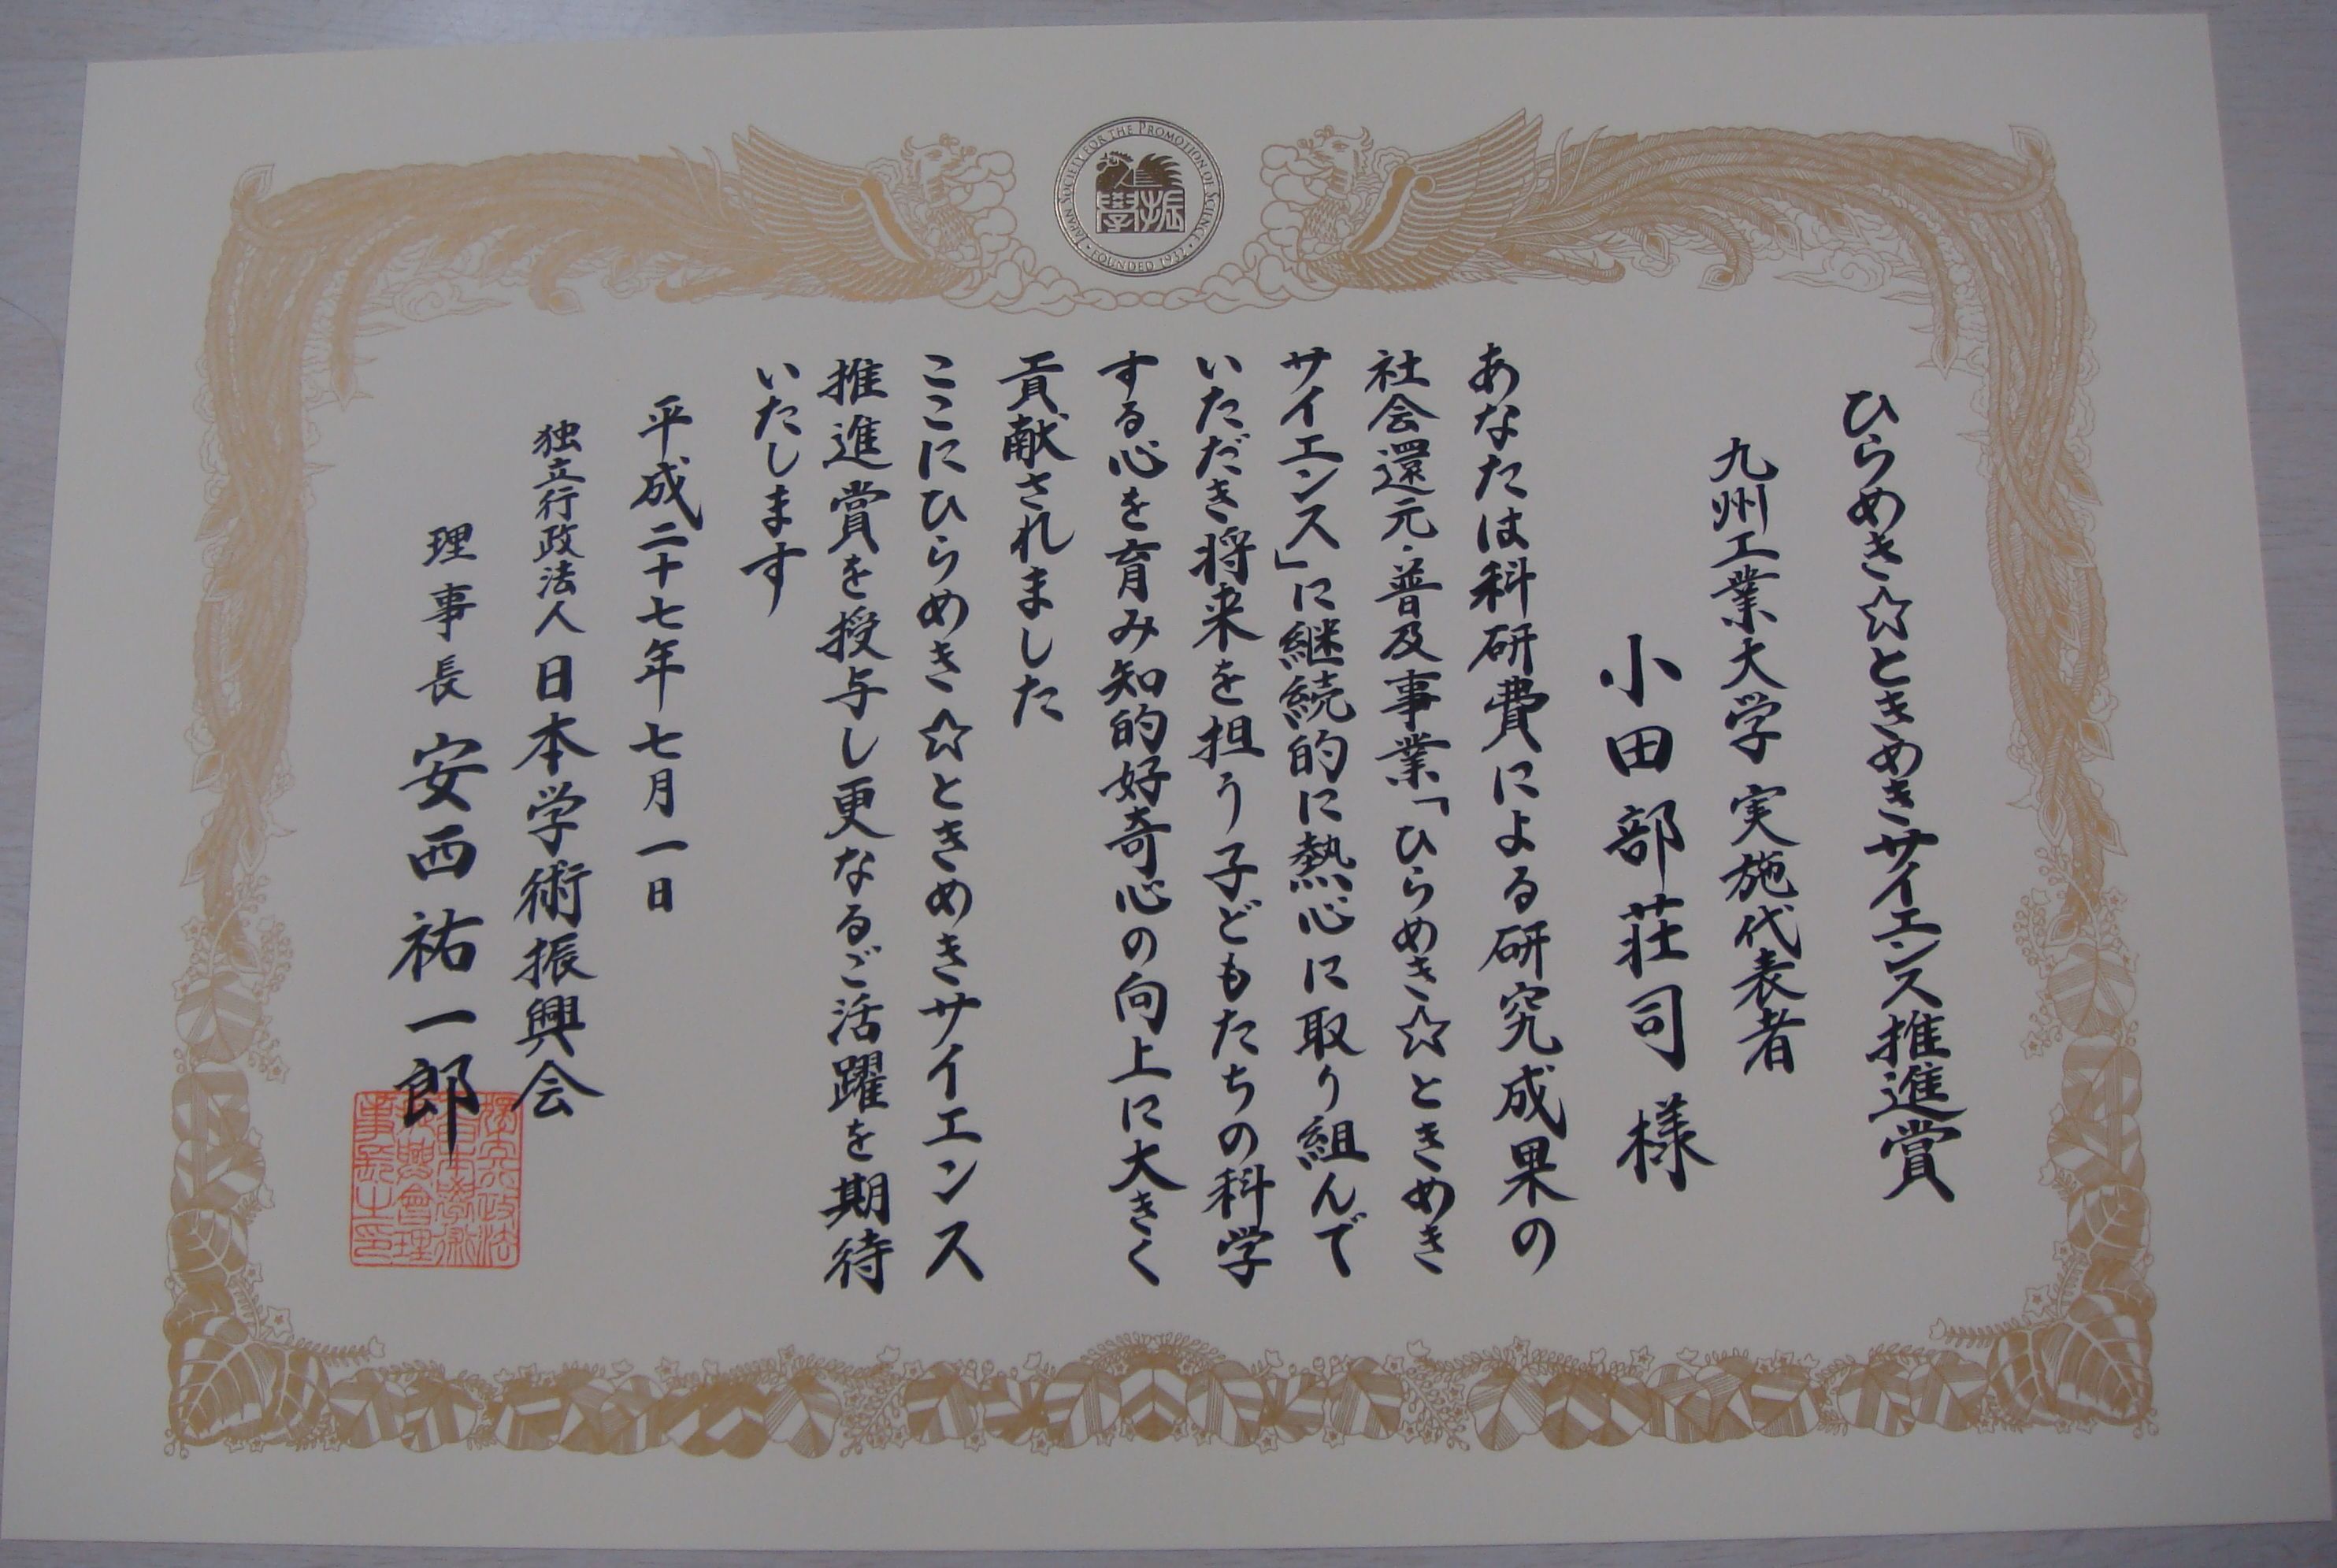 JAPAN SOCIETY FOR THE PROMOTION OF SCIENCE
・FOUNDED 1932・
ひらめき☆ときめきサイエンス推進賞
九州工業大学 実施代表者
小田部荘司様
あなたは科研費による研究成果の
社会還元・普及事業「ひらめき☆ときめき
サイエンス」に継続的に熱心に取り組んで
いただき将来を担う子どもたちの科学
する心を育み知的好奇心の向上に大きく
貢献されました
ここにひらめき☆ときめきサイエンス
推進賞を授与し更なるご活躍を期待
いたします
平成二十七年七月一日
独立行政法人日本学術振興会
理事長 安西祐一郎